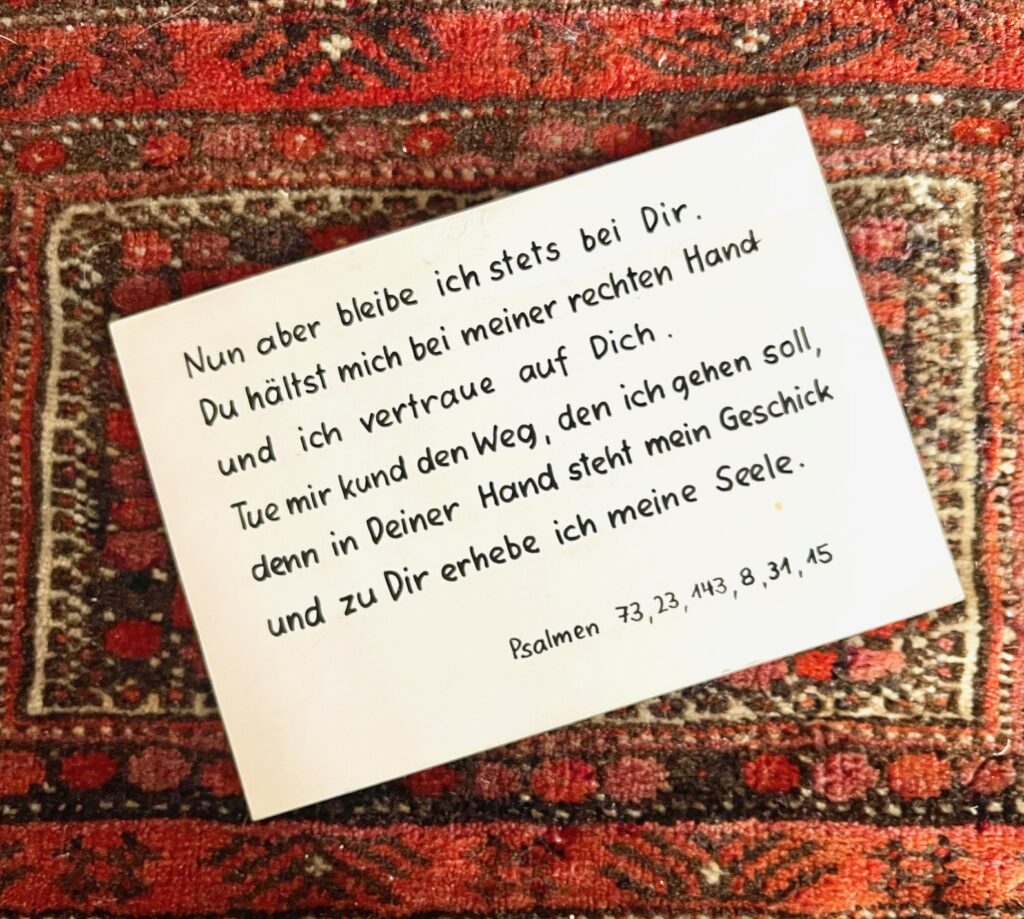 Nun aber bleibe ich stets bei Dir.
Du hältst mich bei meiner rechten Hand
und ich vertraue auf Dich.
Tue mir kund den Weg, den ich gehen soll,
denn in Deiner Hand steht mein Geschick
und zu Dir erhebe ich meine Seele.
Psalmen 73,23,143,8,31,15